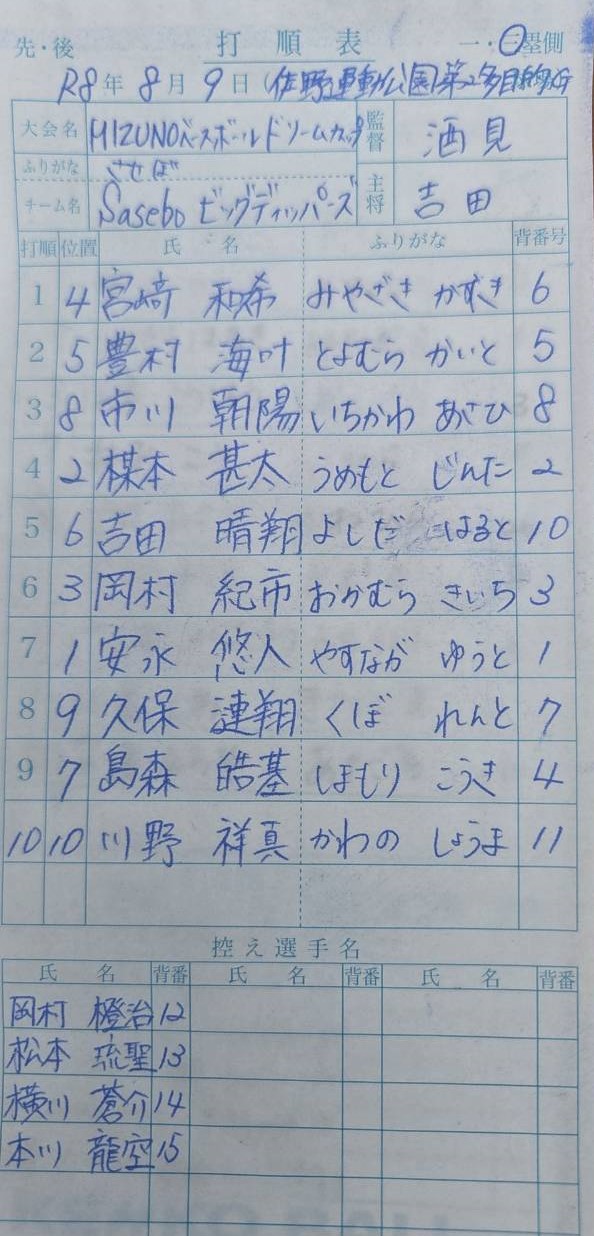 先・後 打順表 一・三塁側
R8年 8月 9日(佐野運動公園第2多目的
大会名 MIZUNOベースボールドリームカップ 監督 酒見
ふりがな させぼ
チーム名 Saseboビッグディッパーズ 主将 吉田
打順 位置 氏名 ふりがな 背番号
1 4 宮崎 和希 みやざき かずき 6
2 5 豊村 海叶 とよむら かいと 5
3 8 市川 朝陽 いちかわ あさひ 8
4 2 楳本 甚太 うめもと じんた 2
5 6 吉田 晴翔 よしだ はると 10
6 3 岡村 紀市 おかむら きいち 3
7 1 安永 悠人 やすなが ゆうと 1
8 9 久保 漣翔 くぼ れんと 7
9 7 島森 皓基 しまもり こうき 4
10 10 川野 祥真 かわの しょうま 11
控え選手名
氏名 背番 氏名 背番 氏名 背番
岡村 橙治 12
松本 琉聖 13
横川 蒼介 14
本川 龍空 15